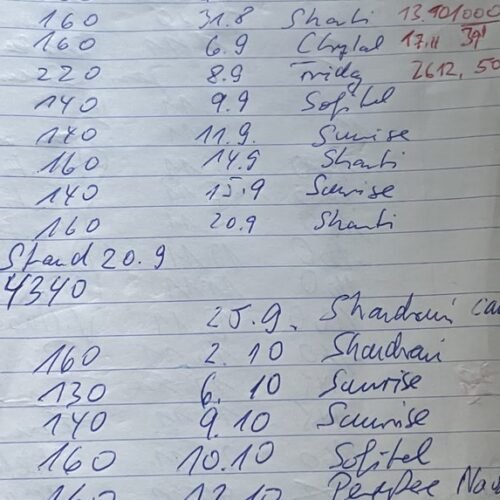 160 31.8 Shanti 13.10 1000
160 6.9 17.11
220 8.9 Friday 2612, 50
140 9.9 Sofitel
140 11.9. Sunrise
160 14.9 Shanti
140 15.9 Sunrise
160 20.9 Shanti
Stand 20.9
4340
25.9. Shandrani
160 2.10 Shandrani
130 6.10 Sunrise
140 9.10 Sunrise
160 10.10 Sofitel
160 12.10